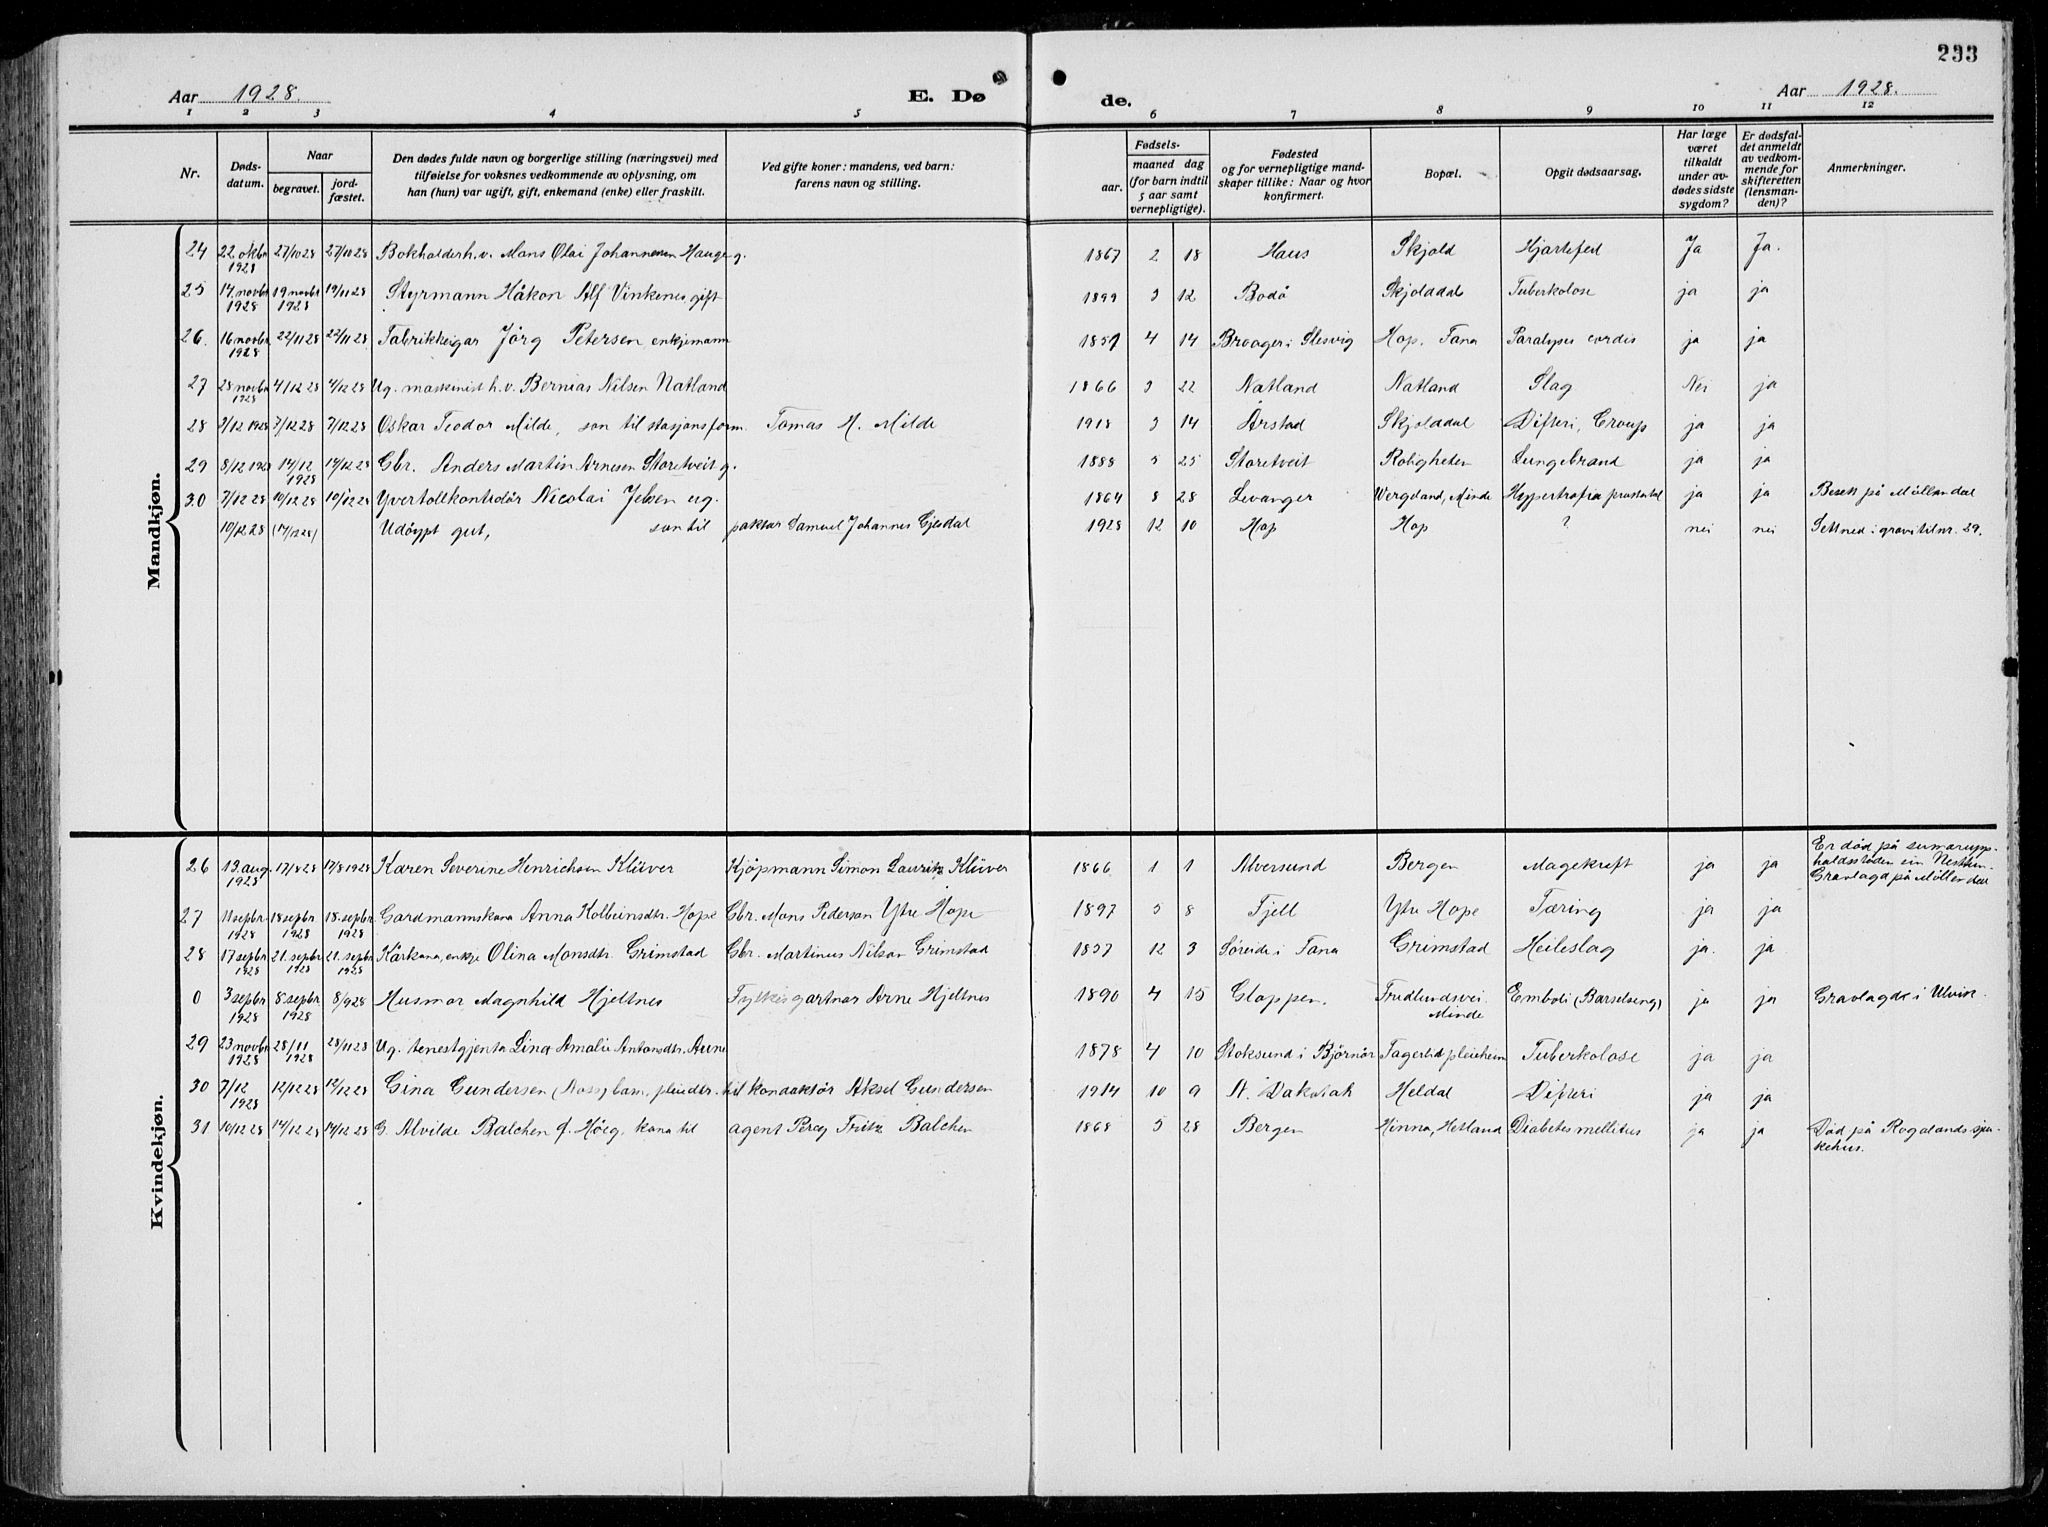 233
Aar 1928. E. Dø de. Aar 1928.
1 2 3 4 5 6 7 8 9 10 11 12
Nr. Døds-datum. Naar begravet. jord-fæstet. Den dødes fulde navn og borgerlige stilling (næringsvei) med tilføielse for voksnes vedkommende av oplysning, om han (hun) var ugift, gift, enkemand (enke) eller fraskilt. Ved gifte koner: mandens, ved barn: farens navn og stilling. Fødsels- aar. maaned dag (for barn indtil 5 aar samt vernepligtige). Fødested og for vernepligtige mand-skaper tillike: Naar og hvor konfirmert. Bopæl. Opgit dødsaarsag. Har læge været tilkaldt under av-dødes sidste sygdom? Er dødsfal-det anmeldt av vedkom-mende for skifteretten (lensman-den)? Anmerkninger.
Mandkjøn.
24 22. oktbr 1928 27/10 28 27/10 28 Bokholder h.v. Mons Olai Johannesen Hauge g. 1867 2 18 Haus Skjold Hjartefed Ja Ja.
25 14. novbr 1928 19 novbr 1928 19/11 28 Styrmann Håkon Alf Vinkenes gift 1899 3 12 Bodö Skjolddal Tuberkolose ja ja
26. 16 novbr 1928 22/11 28 22/11 28 Fabrikkeigar Jörg Petersen enkjemann 1851 4 14 Broager i Slesvig Hop, Fana Paralyses cordis ja ja
27 28 novbr 1928 4/12 28 4/12 28 Ug. maskinist h.v. Bernias Nilsen Natland 1866 3 22 Natland Natland Slag Nei ja
28 3/12 1928 7/12 28 7/12 28 Oskar Teodor Milde, son til stasjonsform. Tomas H. Milde 1918 3 14 Årstad Skjolddal Difteri, Croup ja ja
29 8/12 1928 14/12 1928 14/12 28 Gbr. Anders Martin Arnesen Storetveit g. 1888 5 25 Storetveit Roligheten Lungebrand ja ja
30 7/12 28 10/12 28 10/12 28 Yvertollkontrolör Nicolai Jelsen ug. 1864 8 28 Levanger Wergeland, Minde Hypertrofia prostatal ja ja Besett på Möllendal
10/12 28 (14/12 28) Udöypt gut, son til paktar Samuel Johannes Gjesdal 1928 12 10 Hop Hop ? nei nei Sett ned i grav til nr. 29.
Kvindekjøn.
26 13. aug. 1928 17/8 28 17/8 1928 Karen Severine Henrichsen Klüver Kjöpmann Simon Lauritz Klüver 1866 1 1 Alversund Bergen Magekreft ja ja Er död på sumaropp-haldsstaden sin Nesttun. Gravlagd på Möllendal
27 11 sepbr. 1928 18 sepbr 1928 18. sepbr 1928 Gardmannskona Anna Kolbeinsdtr. Hope Gbr. Mons Pederson Ytre Hope 1897 5 8 Fjell Ytre Hope Tæring ja ja
28 17 sepbr 1928 21. sepbr 1928 21. sepbr 1928 Kårkona, enkje Olina Monsdtr. Grimstad Gbr. Martinus Nilson Grimstad 1837 12 3 Söreide i Fana Grimstad Heileslag ja. ja
0 3 sepbr. 1928 8. sepbr 1928 8/9 28 Husmor Magnhild Hjeltnes Fylkisgartnar Arne Hjeltnes 1890 4 15 Gloppen. Fridlundsvei Minde Emboli (Barselseng) ja ja Gravlagde i Ulvik.
29 23 novbr 1928 28/11 1928 28/11 28 Ug. tenestgjenta Lina Amalie Antonsdtr. Aune 1878 4 10 Stoksund i Björnör Fagerlid pleieheim Tuberkolose ja ja
30 7/12 1928 12/12 28 12/12 28 Gina Gundersen (fossgbarn, pleiedtr. til konduktör Aksel Gundersen 1914 10 9 N. Dakotah Heldal Difteri ja ja
31 10/12 28 14/12 28 14/12 28 G. Alvilde Balchen f. Höeg, kona til agent Percy Fritz Balchen 1868 5 28 Bergen Hinna, Hetland Diabetes mellitus ja ja Död på Rogalands sju-kehus.